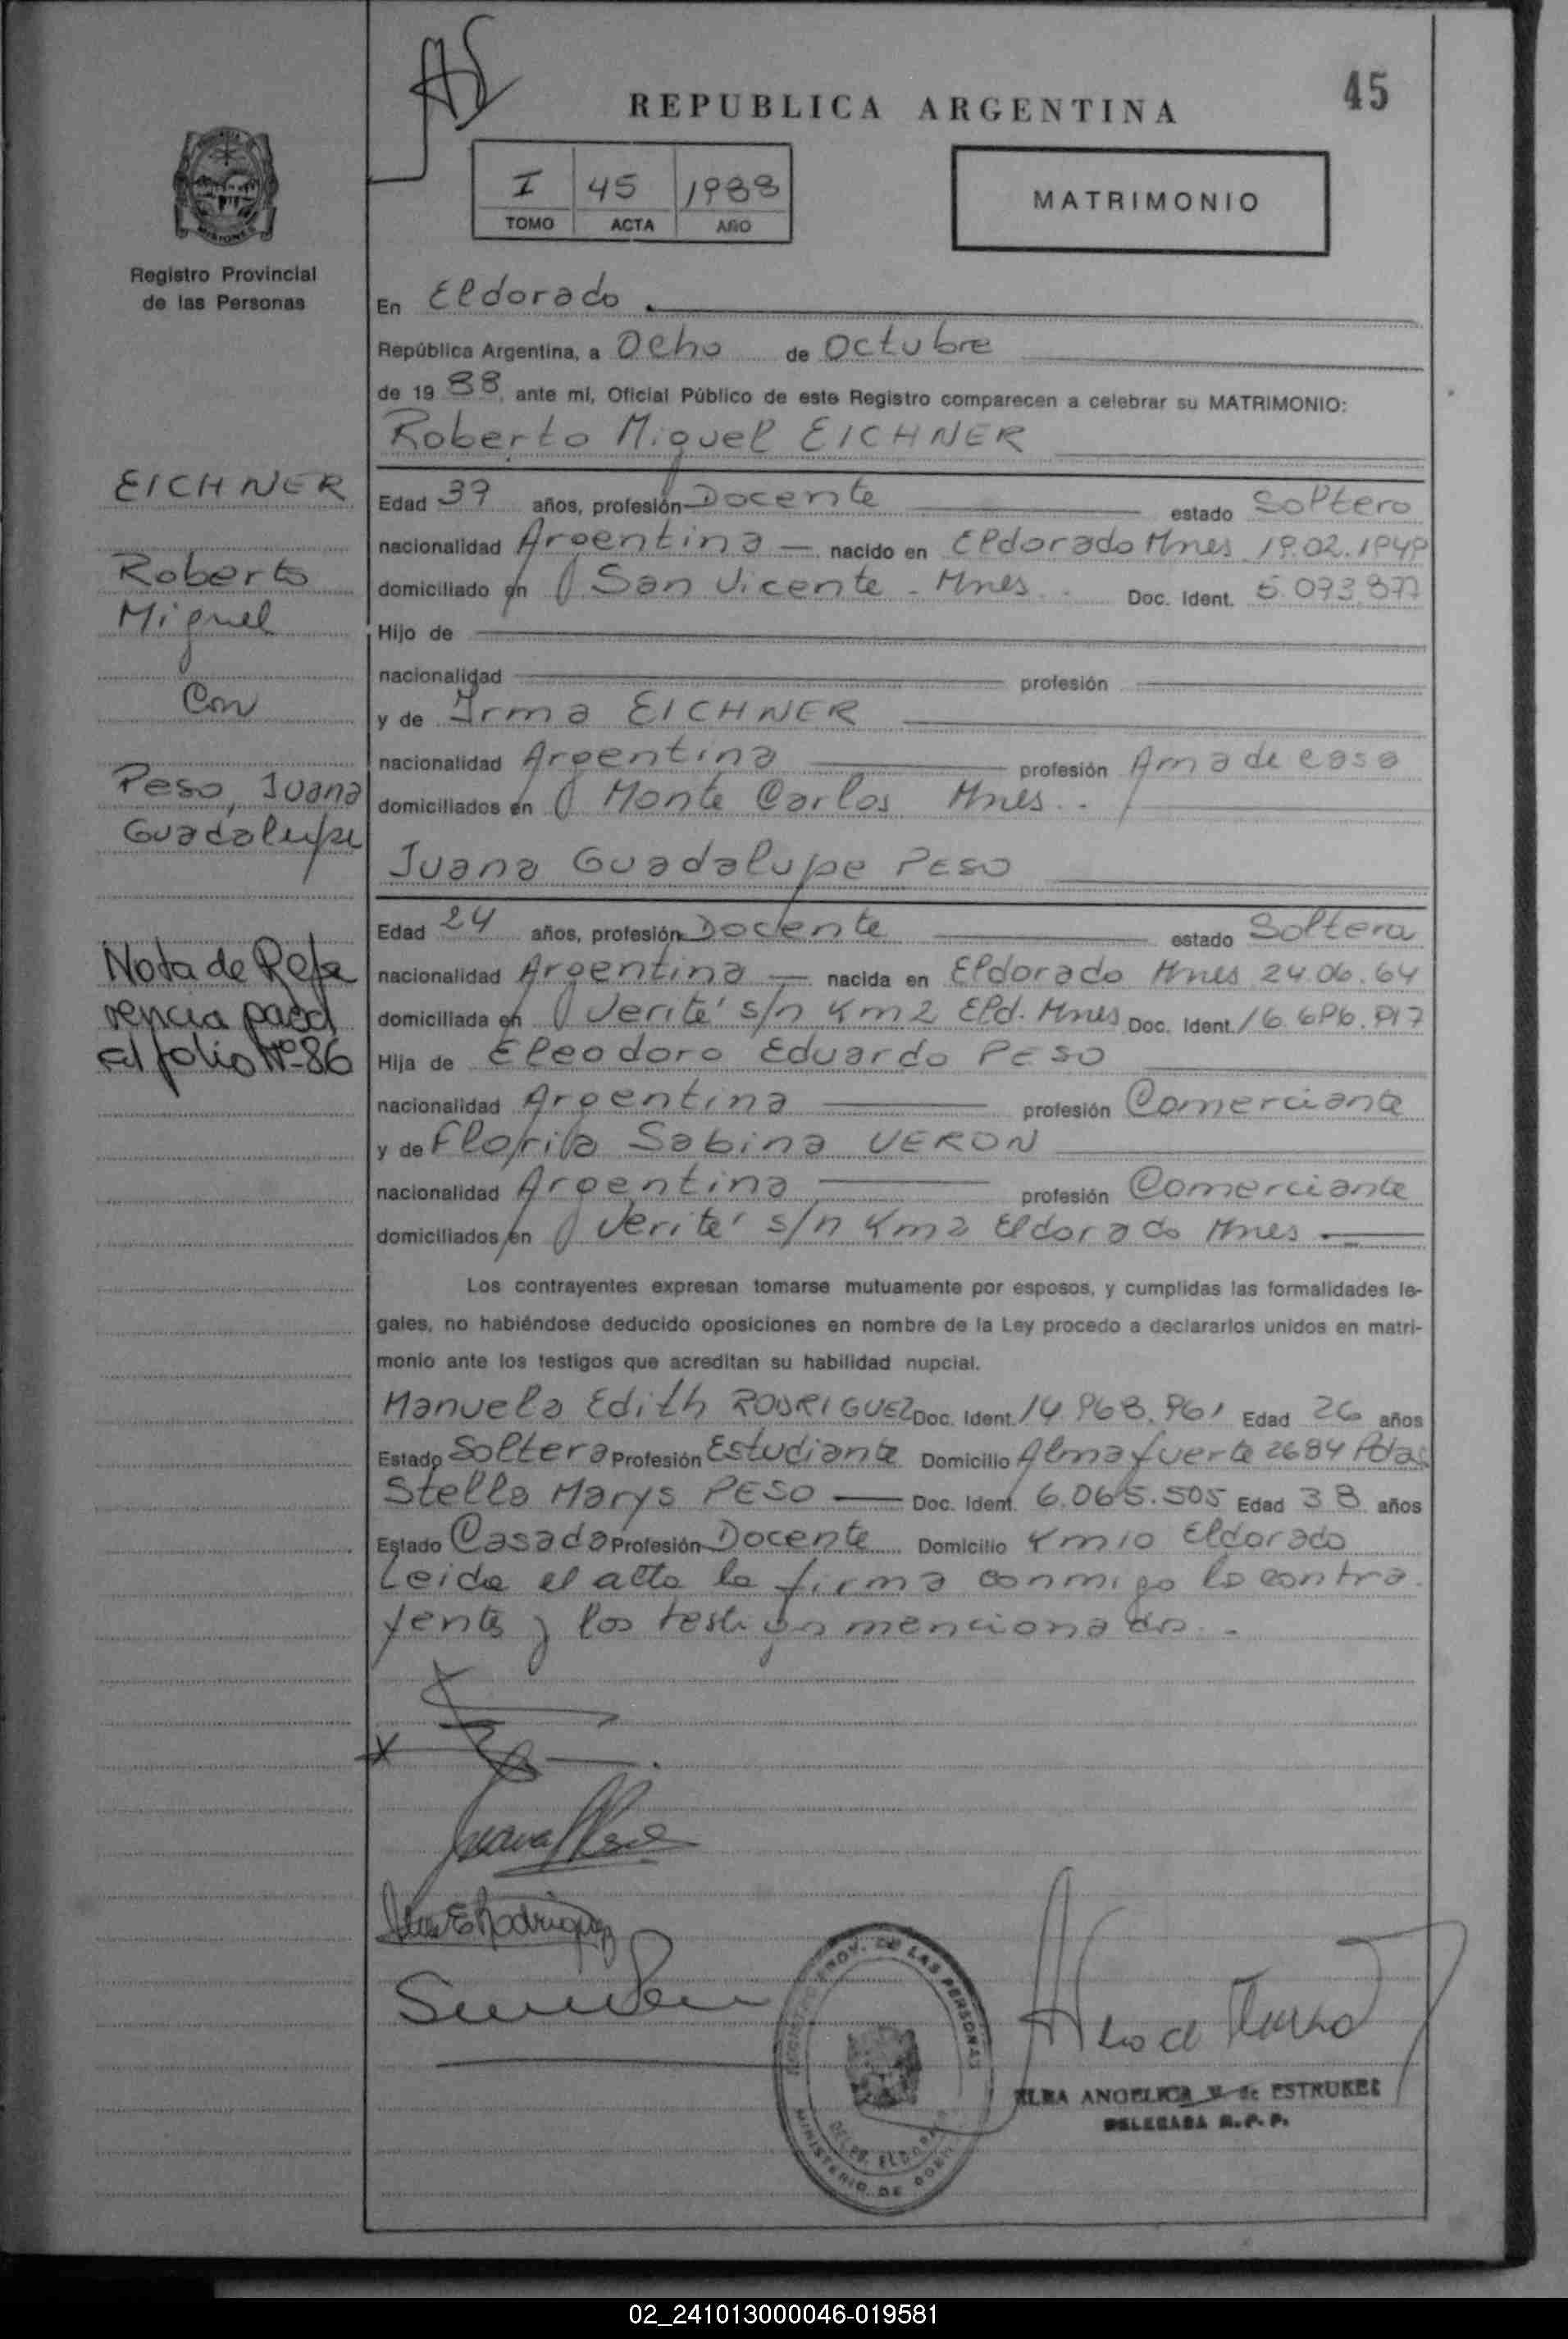 45
REPUBLICA ARGENTINA
I 45 1988
TOMO ACTA AÑO
MATRIMONIO
MISIONES
Registro Provincial
de las Personas
En Eldorado
República Argentina, a Ocho de Octubre
de 19 88, ante mí, Oficial Público de este Registro comparecen a celebrar su MATRIMONIO:
Roberto Miguel EICHNER
EICHNER
Roberto
Miguel
Con
Peso, Juana
Guadalupe
Nota de Refe
rencia
al folio Nº 86
Edad 39 años, profesión Docente estado Soltero
nacionalidad Argentina — nacido en Eldorado Mnes 19.02.1949
domiciliado en San Vicente - Mnes. Doc. Ident. 5.073.877
Hijo de
nacionalidad profesión
y de Irma EICHNER
nacionalidad Argentina profesión Ama de casa
domiciliados en Monte Carlos Mnes.
Juana Guadalupe PESO
Edad 24 años, profesión Docente estado Soltera
nacionalidad Argentina — nacida en Eldorado Mnes 24.06.64
domiciliada en Verite' s/n Km 2 Eld. Mnes Doc. Ident. 16.696.917
Hija de Eleodoro Eduardo PESO
nacionalidad Argentina profesión Comerciante
y de Sabina VERON
nacionalidad Argentina profesión Comerciante
domiciliados en Verite' s/n Km 2 Eldorado Mnes
Los contrayentes expresan tomarse mutuamente por esposos, y cumplidas las formalidades le-
gales, no habiéndose deducido oposiciones en nombre de la Ley procedo a declararlos unidos en matri-
monio ante los testigos que acreditan su habilidad nupcial.
Manuela Edith RODRIGUEZ Doc. Ident. 14.968.961 Edad 26 años
Estado Soltera Profesión Estudiante Domicilio Almafuerte 2684 Pdas
Stella Marys PESO — Doc. Ident. 6.065.505 Edad 38 años
Estado Casada Profesión Docente Domicilio Km 10 Eldorado
Leida el acta la firma conmigo lo contra
yente y los testigos mencionados.
Juana Peso
E Rodriguez
REGISTRO PROV. DE LAS PERSONAS
DELEG. ELDORADO
MINISTERIO DE GOBIERNO
ELBA ANGELICA V. de ESTRUKEL
DELEGADA R.P.P.
02_241013000046-019581